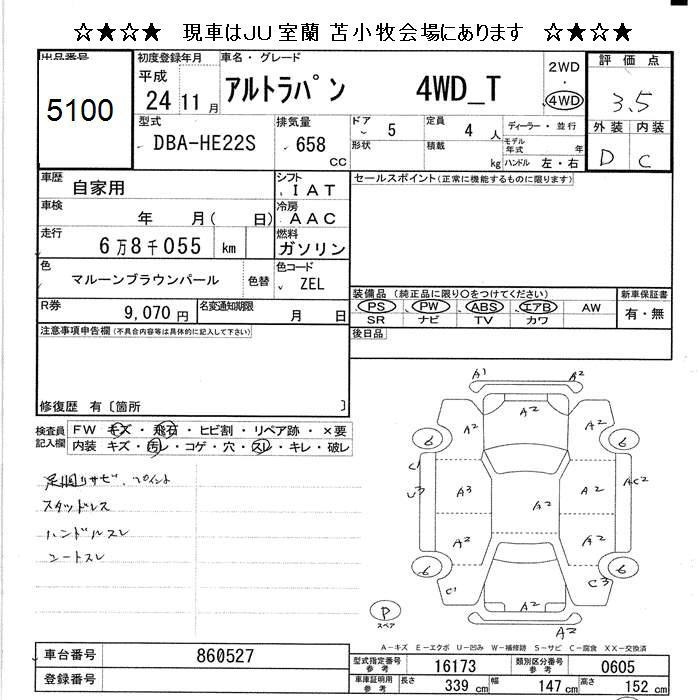 ☆★☆★ 現車はJU室蘭 苫小牧会場にあります ☆★☆★
出品番号
5100
初度登録年月
平成
24 11月
車名・グレード
アルトラパン 4WD_T
2WD
・
4WD
評価点
3.5
外装 内装
D C
型式
DBA-HE22S
排気量
658
CC
ドア 5
定員 4 人
ディーラー・並行
形状
積載 kg
モデル年式 年
ハンドル 左・右
車歴
自家用
シフト
IAT
車検
年 月( 日)
冷房
AAC
走行
6万8千055 km
燃料
ガソリン
色
マルーンブラウンパール
色替
色コード
ZEL
R券
9,070円
名変通知期限
月 日
セールスポイント(正常に機能するものに限ります)
装備品(純正品に限り○をつけてください)
PS PW ABS エアB AW
SR ナビ TV カワ
新車保証書
有・無
後日品
注意事項申告欄(不具合内容等は具体的に記入して下さい)
修復歴 有〔箇所 〕
検査員記入欄
FW キズ・飛石・ヒビ割・リペア跡・×要
内装 キズ・汚レ・コゲ・穴・スレ・キレ・破レ
足廻りサビ、ペイント
スタッドレス
ハンドルスレ
シートスレ
A1 A2
A2
A2 A2
6 6
C1
U3 A3 A2 A2 AC2
A2 A2
6 6
C1 C3
A2 A2
A2
P
スペア
A－キズ E－エクボ U－凹み W－補修跡 S－サビ C－腐食 XX－交換済
車台番号 860527
登録番号
型式指定番号 参考 16173
類別区分番号 参考 0605
車庫証明用 参考 長さ 339 cm 幅 147 cm 高さ 152 cm